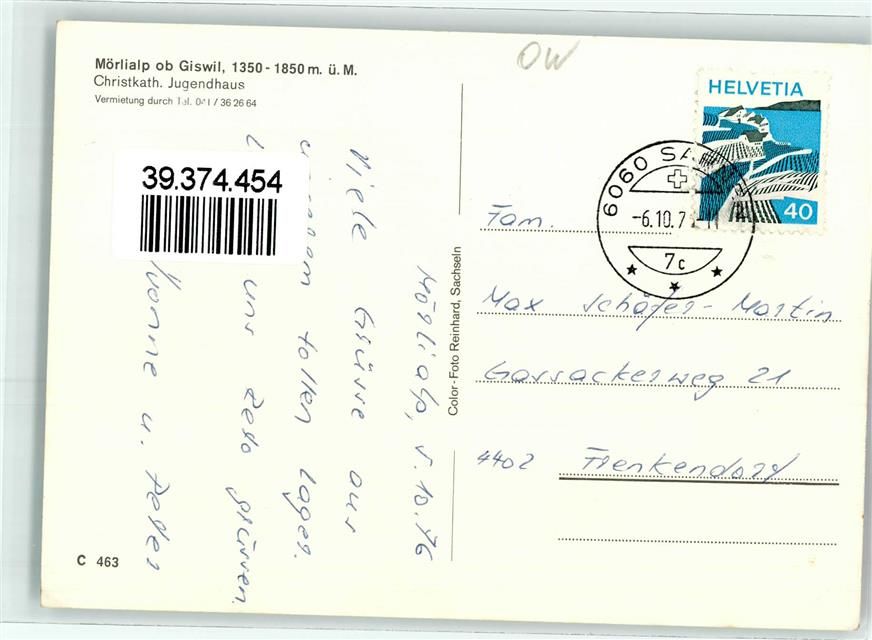 Mörlialp ob Giswil, 1350 - 1850 m. ü. M.
Christkath. Jugendhaus
Vermietung durch Tel. 041 / 36 26 64
OW
HELVETIA
40
6060 SA
-6.10.7
7c
39.374.454
Mörlialp, 5.10.76
Viele Grüsse aus
tollen Lager.
uns Reto grüssen.
Yvonne u. Peter
Color-Foto Reinhard, Sachseln
Fam.
Max Schäfer-Martin
Gassackerweg 21
4402 Frenkendorf
C 463